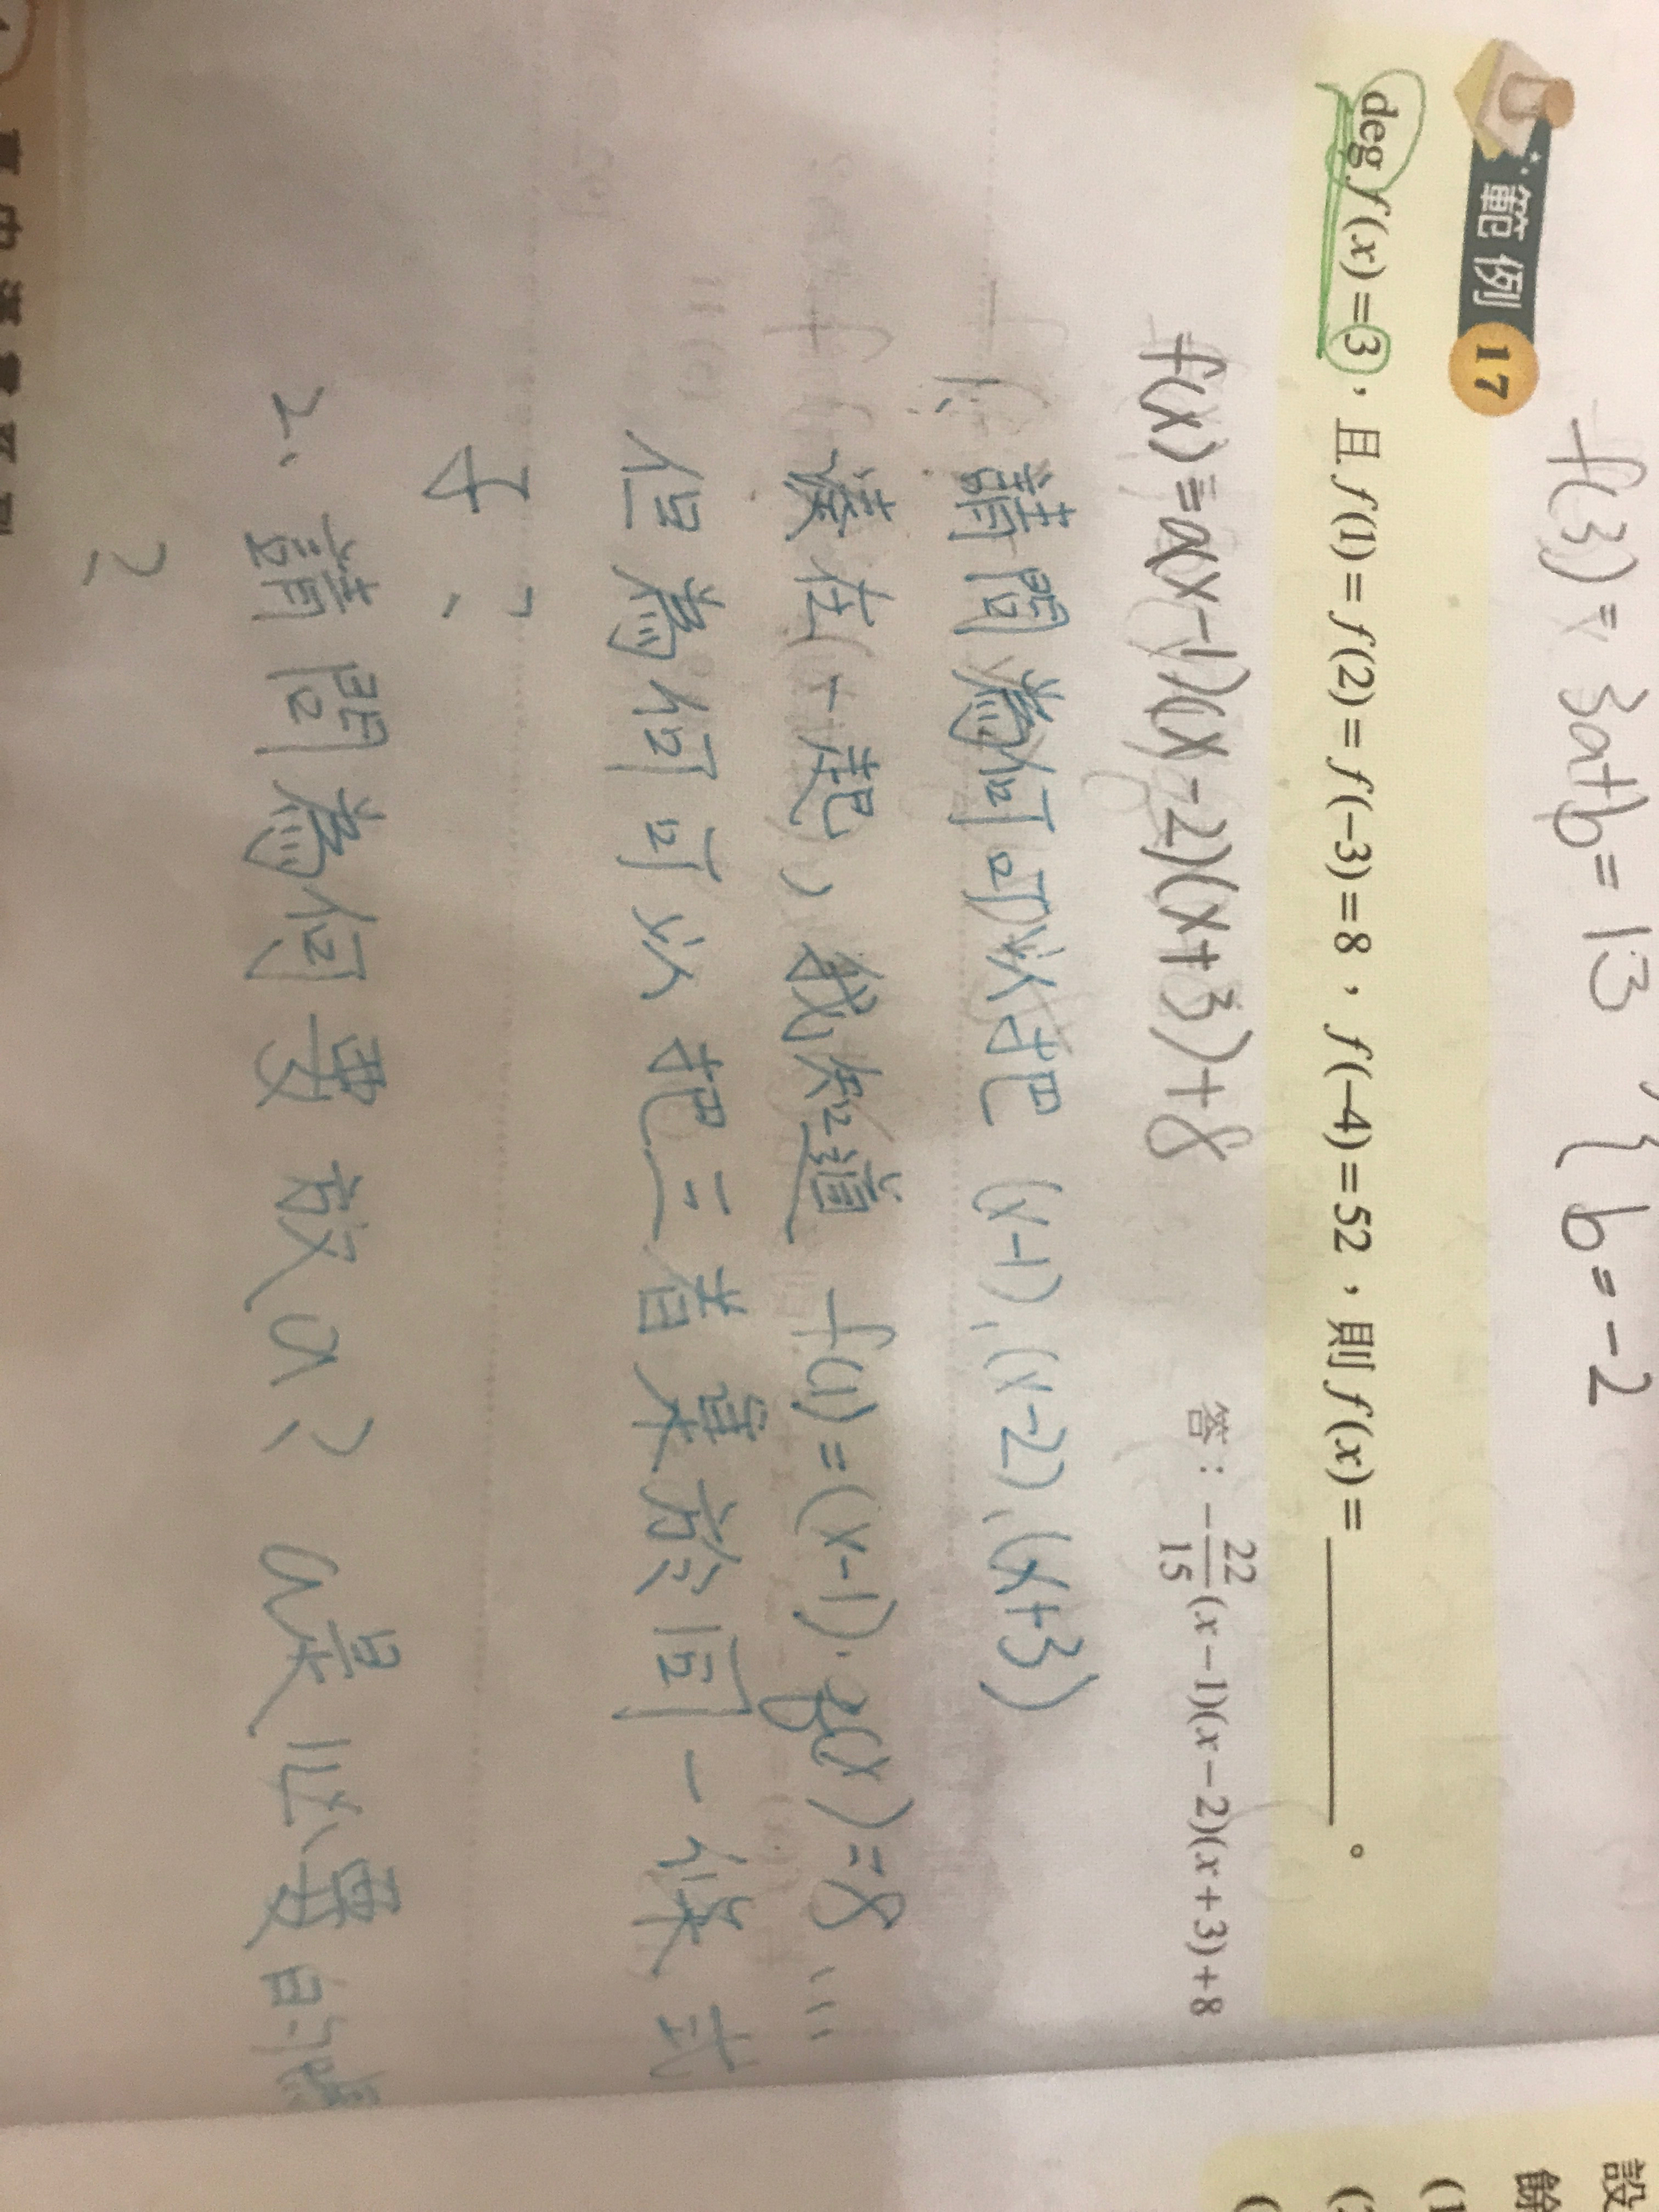 f(3) = 3a+b = 13 , { b = -2
範例 17
deg f(x) = 3,且 f(1) = f(2) = f(-3) = 8,f(-4) = 52,則 f(x) = ________。
答:-22/15(x-1)(x-2)(x+3)+8
f(x) = a(x-1)(x-2)(x+3)+8
1、請問為何可以把 (x-1)、(x-2)、(x+3)
湊在一起,我知道 f(1) = (x-1)·g(x) = 8 …
但為何可以把三者集於同一條式
子?
2、請問為何要放a? a是必要的嗎
?
設
餘
(1
(2
(